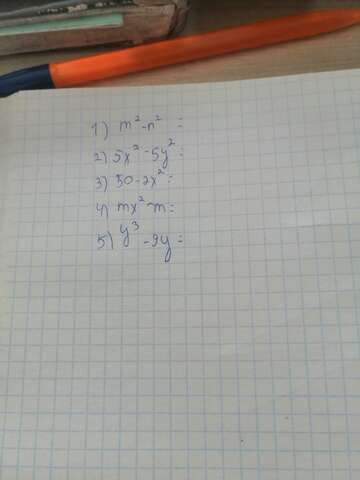 1) m²-n²=
2) 5x²-5y²=
3) 50-2x²=
4) mx²-m=
5) y³-9y=